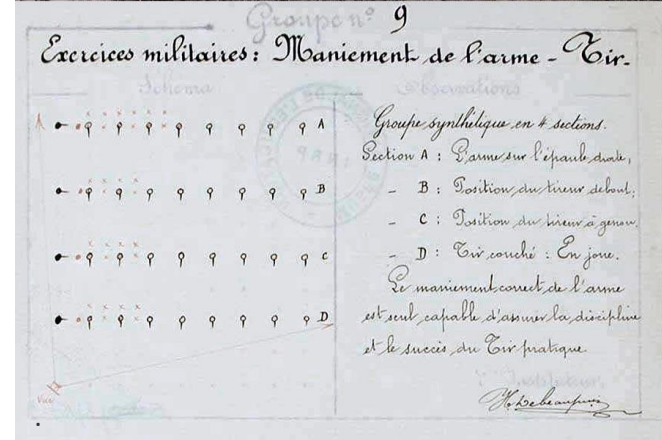 Groupe n° 9
Exercices militaires : Maniement de l'arme - Tir.
Schema
Observations
A
B
C
D
Vue
Groupe synthétique en 4 sections.
Section A : L'arme sur l'épaule droite;
- B : Position du tireur debout;
- C : Position du tireur à genou.
- D : Tir couché : En joue.
Le maniement correct de l'arme
est seul capable d'assurer la discipline
et le succès du Tir pratique.
L'Instituteur,